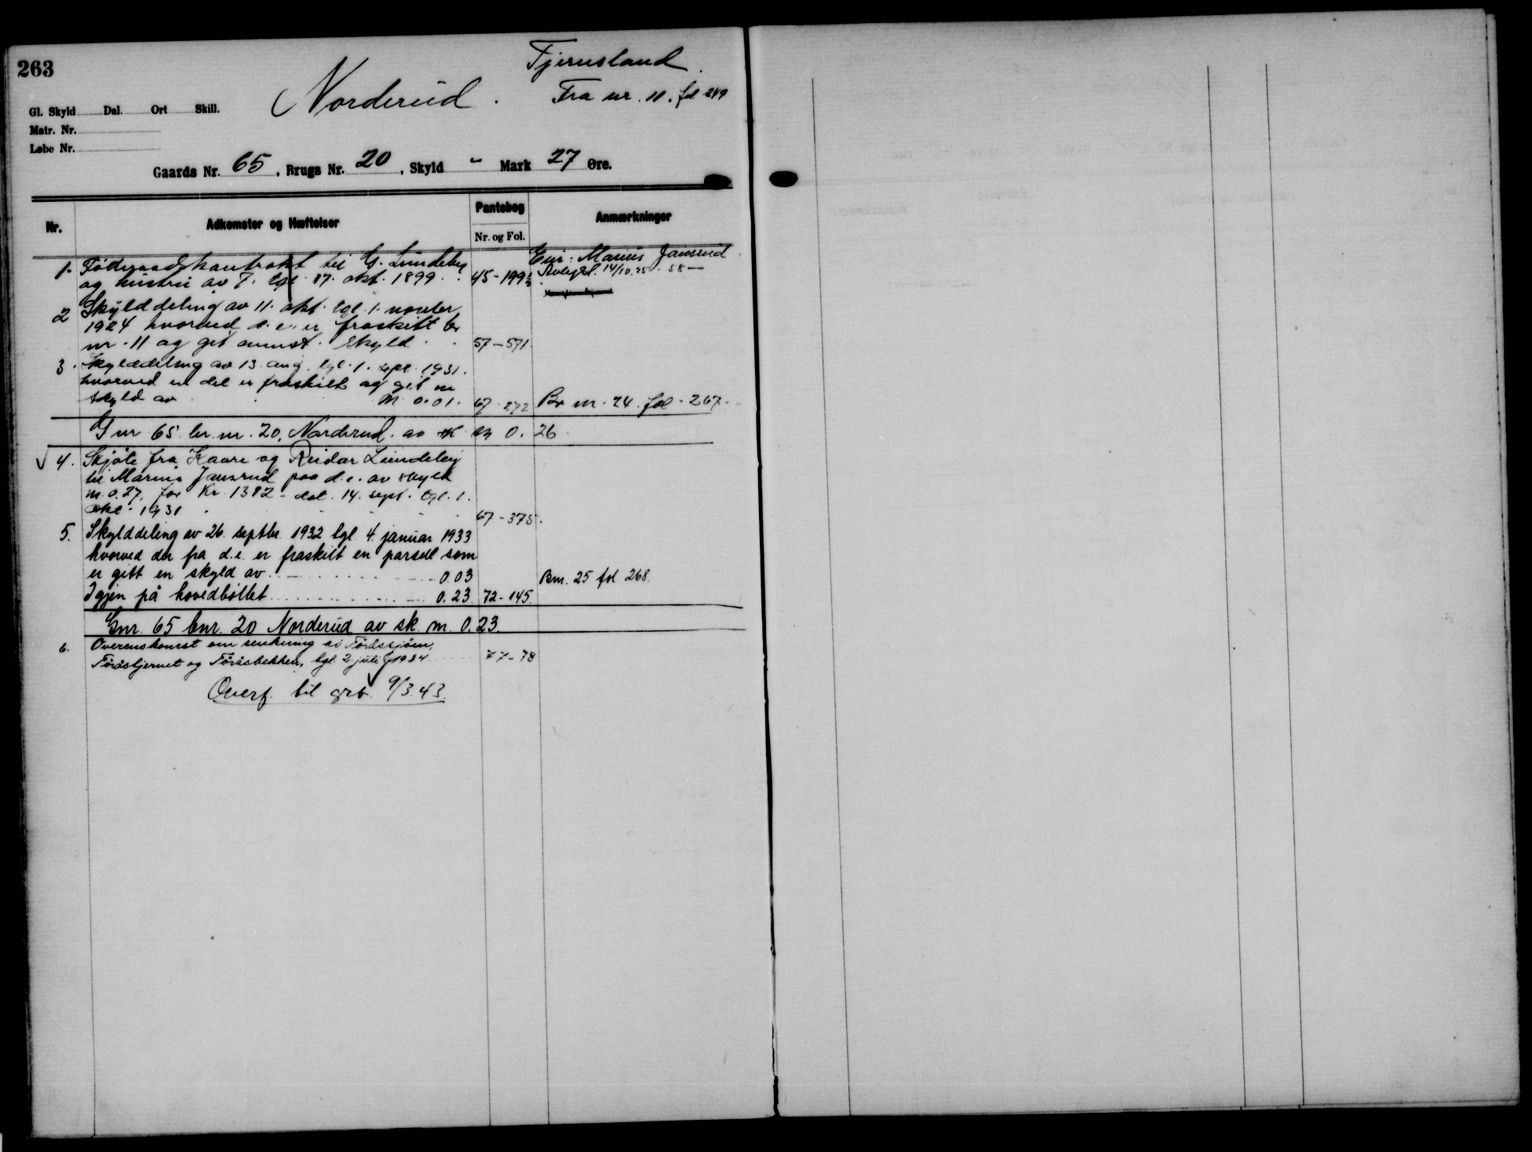 263
Tjernsland.
Norderud.
Fra nr. 11. fol 249
Gl. Skyld Dal. Ort Skill.
Matr. Nr.
Løbe Nr.
Gaards Nr. 65, Brugs Nr. 20, Skyld " Mark 27 Øre.
Nr. Adkomster og Hæftelser Pantebog Anmærkninger
Nr. og Fol.
Eier: Marius Jansrud
1. Føderaadskontrakt til G. Lundeby
og hustru av 7. tgl. 17. okt. 1899 45-199
14/10.25 - 58
2 Skylddeling av 11. okt. tgl. 1. novbr.
1924 hvorved d. e. er fraskilt br
nr. 11 og git anmst. skyld 57-571
3. Skylddeling av 13 aug. tgl. 1. sept. 1931.
hvorved en del er fraskilt og git en
skyld av M 0.01. 67-272 Br nr. 24 fol. 267.
Gnr 65 br. nr. 20, Norderud. av sk m 0. 26
4. Skjøte fra Kaare og Reidar Lundeby
til Marius Jansrud paa d. e. av skyld
m. 0.27. for Kr. 1382 - dat. 14. sept. tgl. 1.
okt. 1931 67-375.
5. Skylddeling av 26. septbr. 1932 tgl. 4. januar 1933
hvorved der fra d. e. er fraskilt en parsell som
er gitt en skyld av 0.03 Bnr. 25 fol 268.
Igjen på hovedbøllet 0.23 72-145
Gnr. 65 bnr. 20 Norderud av sk m 0.23.
6. Overenskomst om senkning av Toråssjøen,
Toråstjernet og Toråsbekken, tgl. 2 juli 1934 77-78
Overf. til grb. 9/3.43.